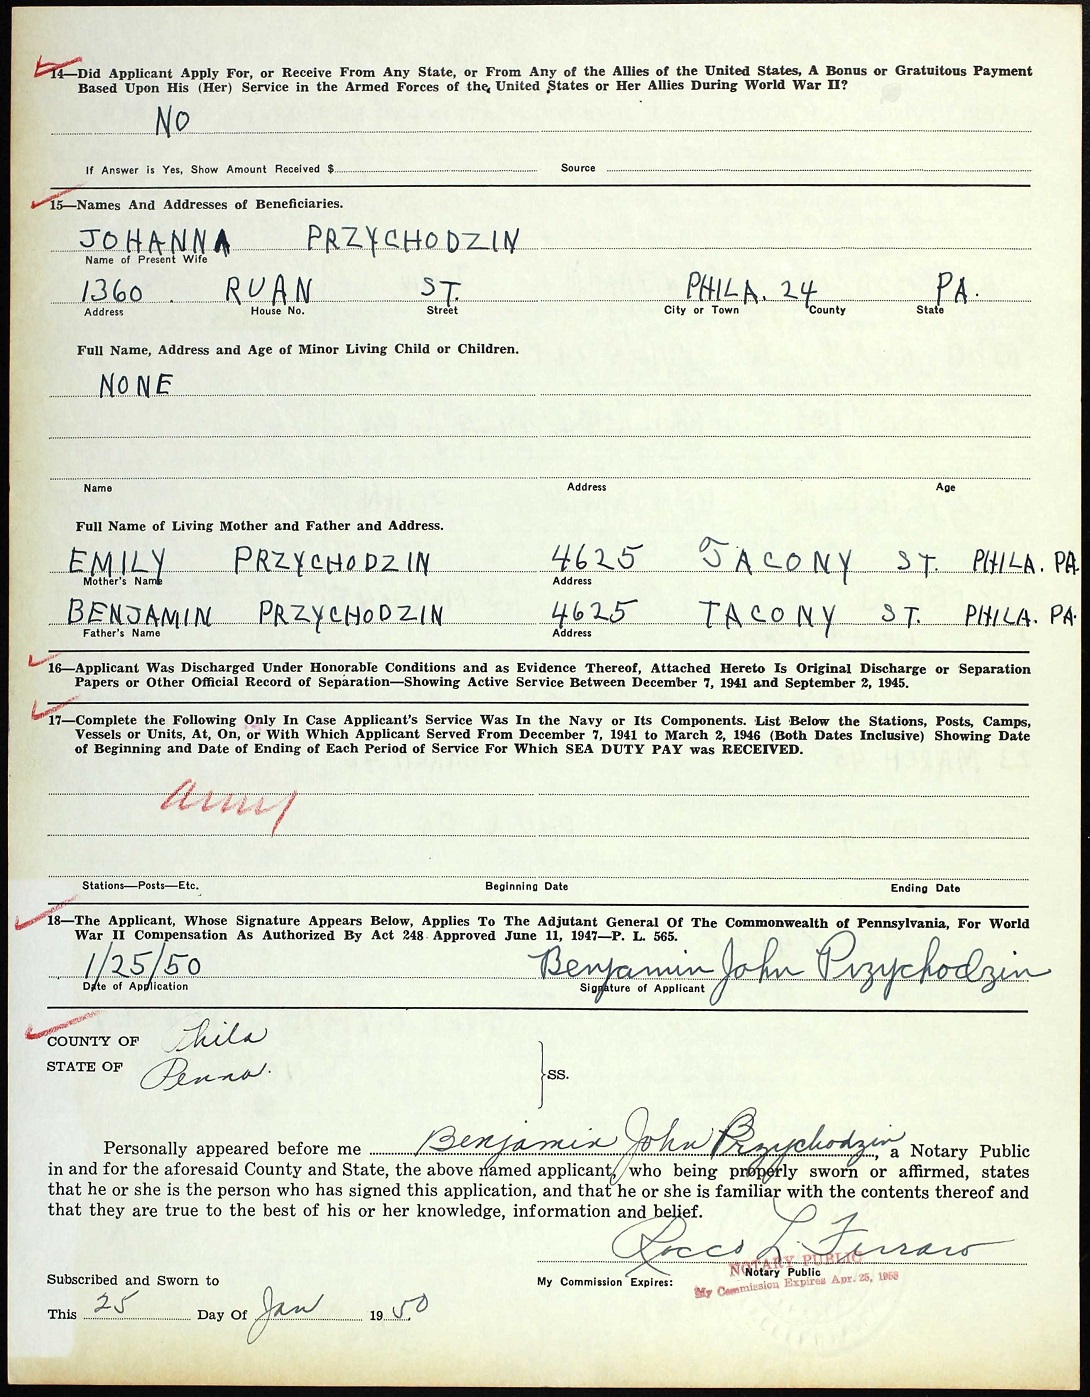 14—Did Applicant Apply For, or Receive From Any State, or From Any of the Allies of the United States, A Bonus or Gratuitous Payment
Based Upon His (Her) Service in the Armed Forces of the United States or Her Allies During World War II?
NO
If Answer is Yes, Show Amount Received $ Source
15—Names And Addresses of Beneficiaries.
JOHANNA PRZYCHODZIN
Name of Present Wife
1360 RUAN ST. PHILA. 24 PA.
Address House No. Street City or Town County State
Full Name, Address and Age of Minor Living Child or Children.
NONE
Name Address Age
Full Name of Living Mother and Father and Address.
EMILY PRZYCHODZIN 4625 TACONY ST. PHILA. PA.
Mother's Name Address
BENJAMIN PRZYCHODZIN 4625 TACONY ST. PHILA. PA.
Father's Name Address
16—Applicant Was Discharged Under Honorable Conditions and as Evidence Thereof, Attached Hereto Is Original Discharge or Separation
Papers or Other Official Record of Separation—Showing Active Service Between December 7, 1941 and September 2, 1945.
17—Complete the Following Only In Case Applicant's Service Was In the Navy or Its Components. List Below the Stations, Posts, Camps,
Vessels or Units, At, On, or With Which Applicant Served From December 7, 1941 to March 2, 1946 (Both Dates Inclusive) Showing Date
of Beginning and Date of Ending of Each Period of Service For Which SEA DUTY PAY was RECEIVED.
Army
Stations—Posts—Etc. Beginning Date Ending Date
18—The Applicant, Whose Signature Appears Below, Applies To The Adjutant General Of The Commonwealth of Pennsylvania, For World
War II Compensation As Authorized By Act 248 Approved June 11, 1947—P. L. 565.
1/25/50 Benjamin John Przychodzin
Date of Application Signature of Applicant
COUNTY OF Phila
STATE OF Penna. SS.
Personally appeared before me Benjamin John Przychodzin, a Notary Public
in and for the aforesaid County and State, the above named applicant, who being properly sworn or affirmed, states
that he or she is the person who has signed this application, and that he or she is familiar with the contents thereof and
that they are true to the best of his or her knowledge, information and belief.
Rocco L. Ferraro
NOTARY PUBLIC
Notary Public
Subscribed and Sworn to My Commission Expires: My Commission Expires Apr. 25, 1953
This 25 Day Of Jan 19 50